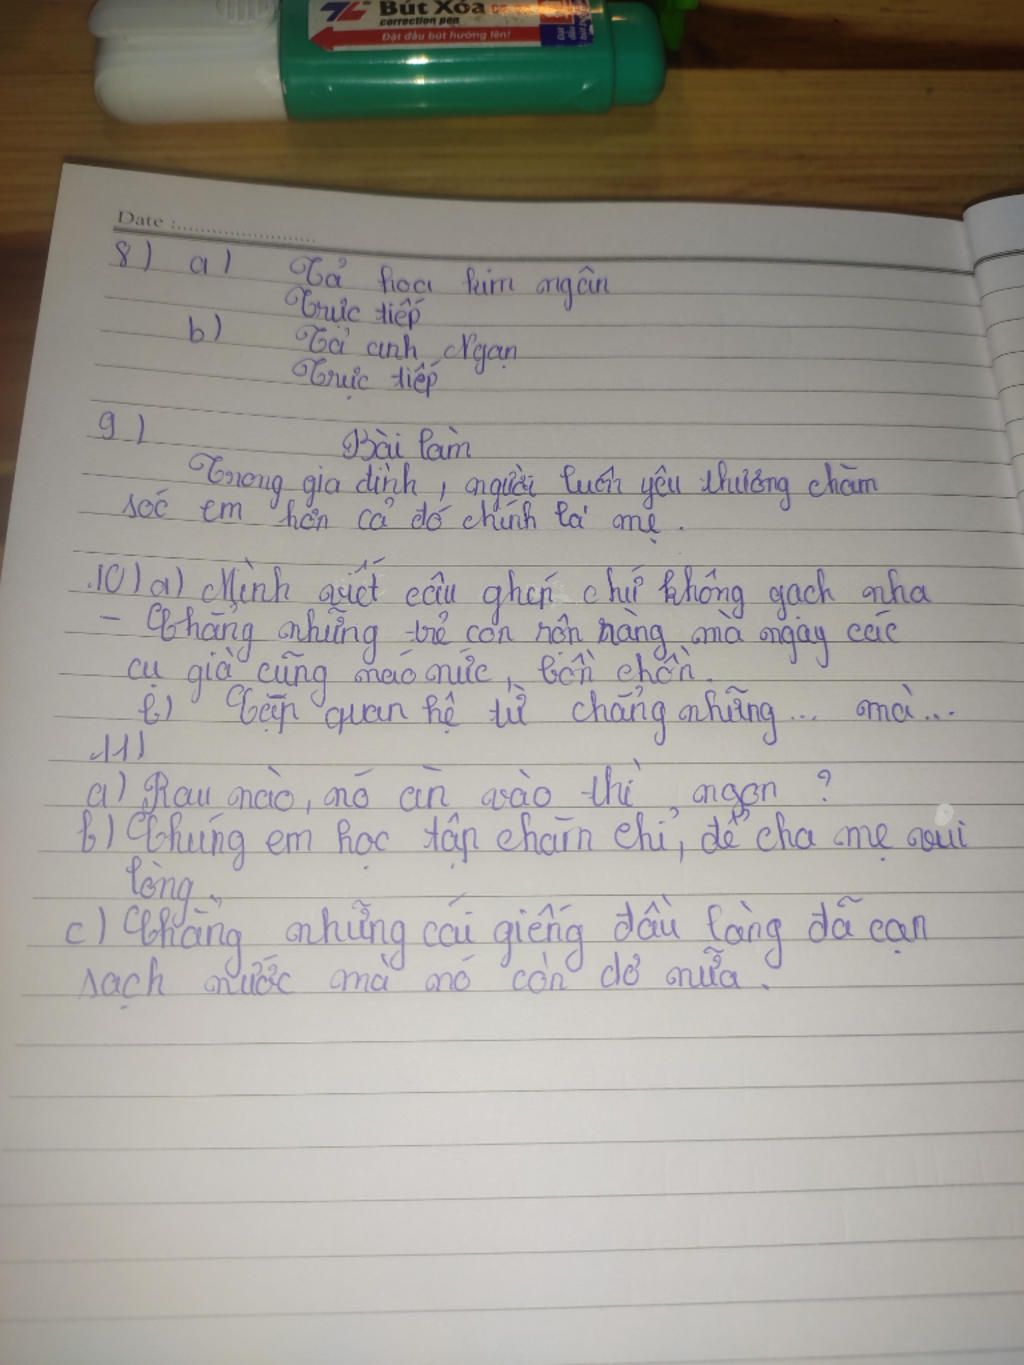 Bút Xóa
correction pen
Đặt đầu bút hướng lên!
Date :
8) a) Tả hoa kim ngân
Trực tiếp
b) Tả anh Ngạn
Trực tiếp
9) Bài làm
Trong gia đình, người luôn yêu thương chăm
sóc em hơn cả đó chính là mẹ.
10) a) Mình viết câu ghép chứ không gạch nha
- Chẳng những trẻ con rộn ràng mà ngay các
cụ già cũng náo nức, bồn chồn.
b) Cặp quan hệ từ chẳng những... mà...
11)
a) Rau nào, nó ăn vào thì ngon ?
b) Chúng em học tập chăm chỉ, để cha mẹ vui
lòng.
c) Chẳng những cái giếng đầu làng đã cạn
sạch nước mà nó còn dơ nữa.